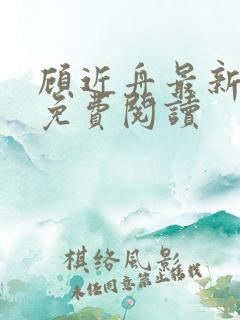 顾近舟最新
免費閱讀
棋络風影
未经同意禁止转载